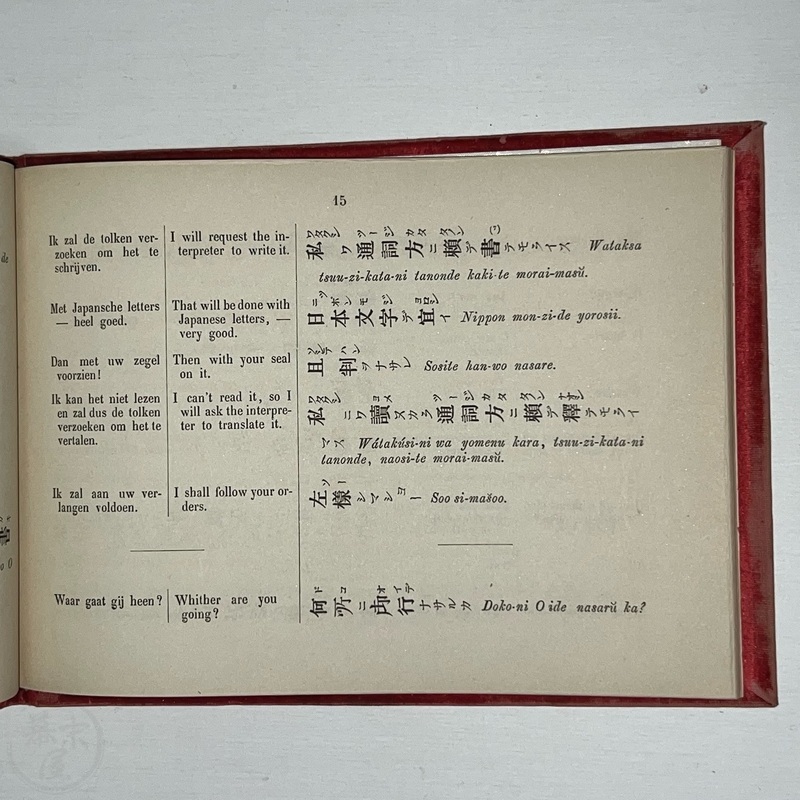 15
Ik zal de tolken ver-
zoeken om het te
schrijven.
I will request the in-
terpreter to write it.
ワタクシ ツージ カタ タノン
私ワ通詞方ニ頼デ書テモライマス Wataksa
tsuu-zi-kata-ni tanonde kaki-te morai-masŭ.
Met Japansche letters
— heel goed.
That will be done with
Japanese letters, —
very good.
ニッポンモンジ ヨロシ
日本文字デ宜イ Nippon mon-zi-de yorosii.
Dan met uw zegel
voorzien!
Then with your seal
on it.
ソシテ ハン
且判ヲナサレ Sosite han-wo nasare.
Ik kan het niet lezen
en zal dus de tolken
verzoeken om het te
vertalen.
I can't read it, so I
will ask the interpre-
ter to translate it.
ワタクシ ヨメ ツージ カタ タノン ナオシ
私ニワ讀ヌカラ通詞方ニ頼デ釋テモライ
マス Wátakúsi-ni wa yomenu kara, tsuu-zi-kata-ni
tanonde, naosi-te morai-masŭ.
Ik zal aan uw ver-
langen voldoen.
I shall follow your or-
ders.
ソー
左樣シマショー Soo si-mašoo.
Waar gaat gij heen?
Whither are you
going?
ド コ オ イデ
何所ニ御行ナサルカ Doko-ni O ide nasarŭ ka?
de